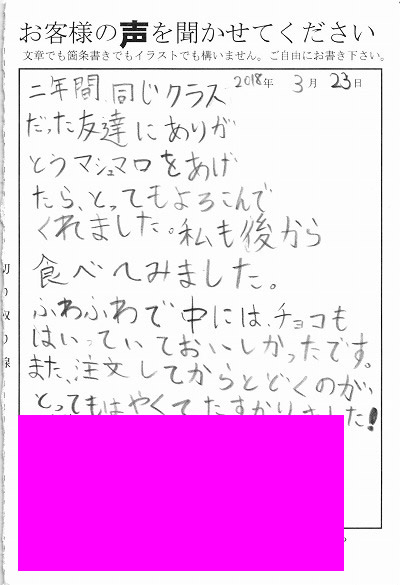 お客様の声を聞かせてください
文章でも箇条書きでもイラストでも構いません。ご自由にお書き下さい。
2018年 3月 23日
二年間同じクラス
だった友達にありが
とうマシュマロをあげ
たら、とってもよろこんで
くれました。私も後から
食べてみました。
ふわふわで中には、チョコも
はいっていておいしかったです。
また、注文してからとどくのが、
とってもはやくてたすかりました!
切り取り線